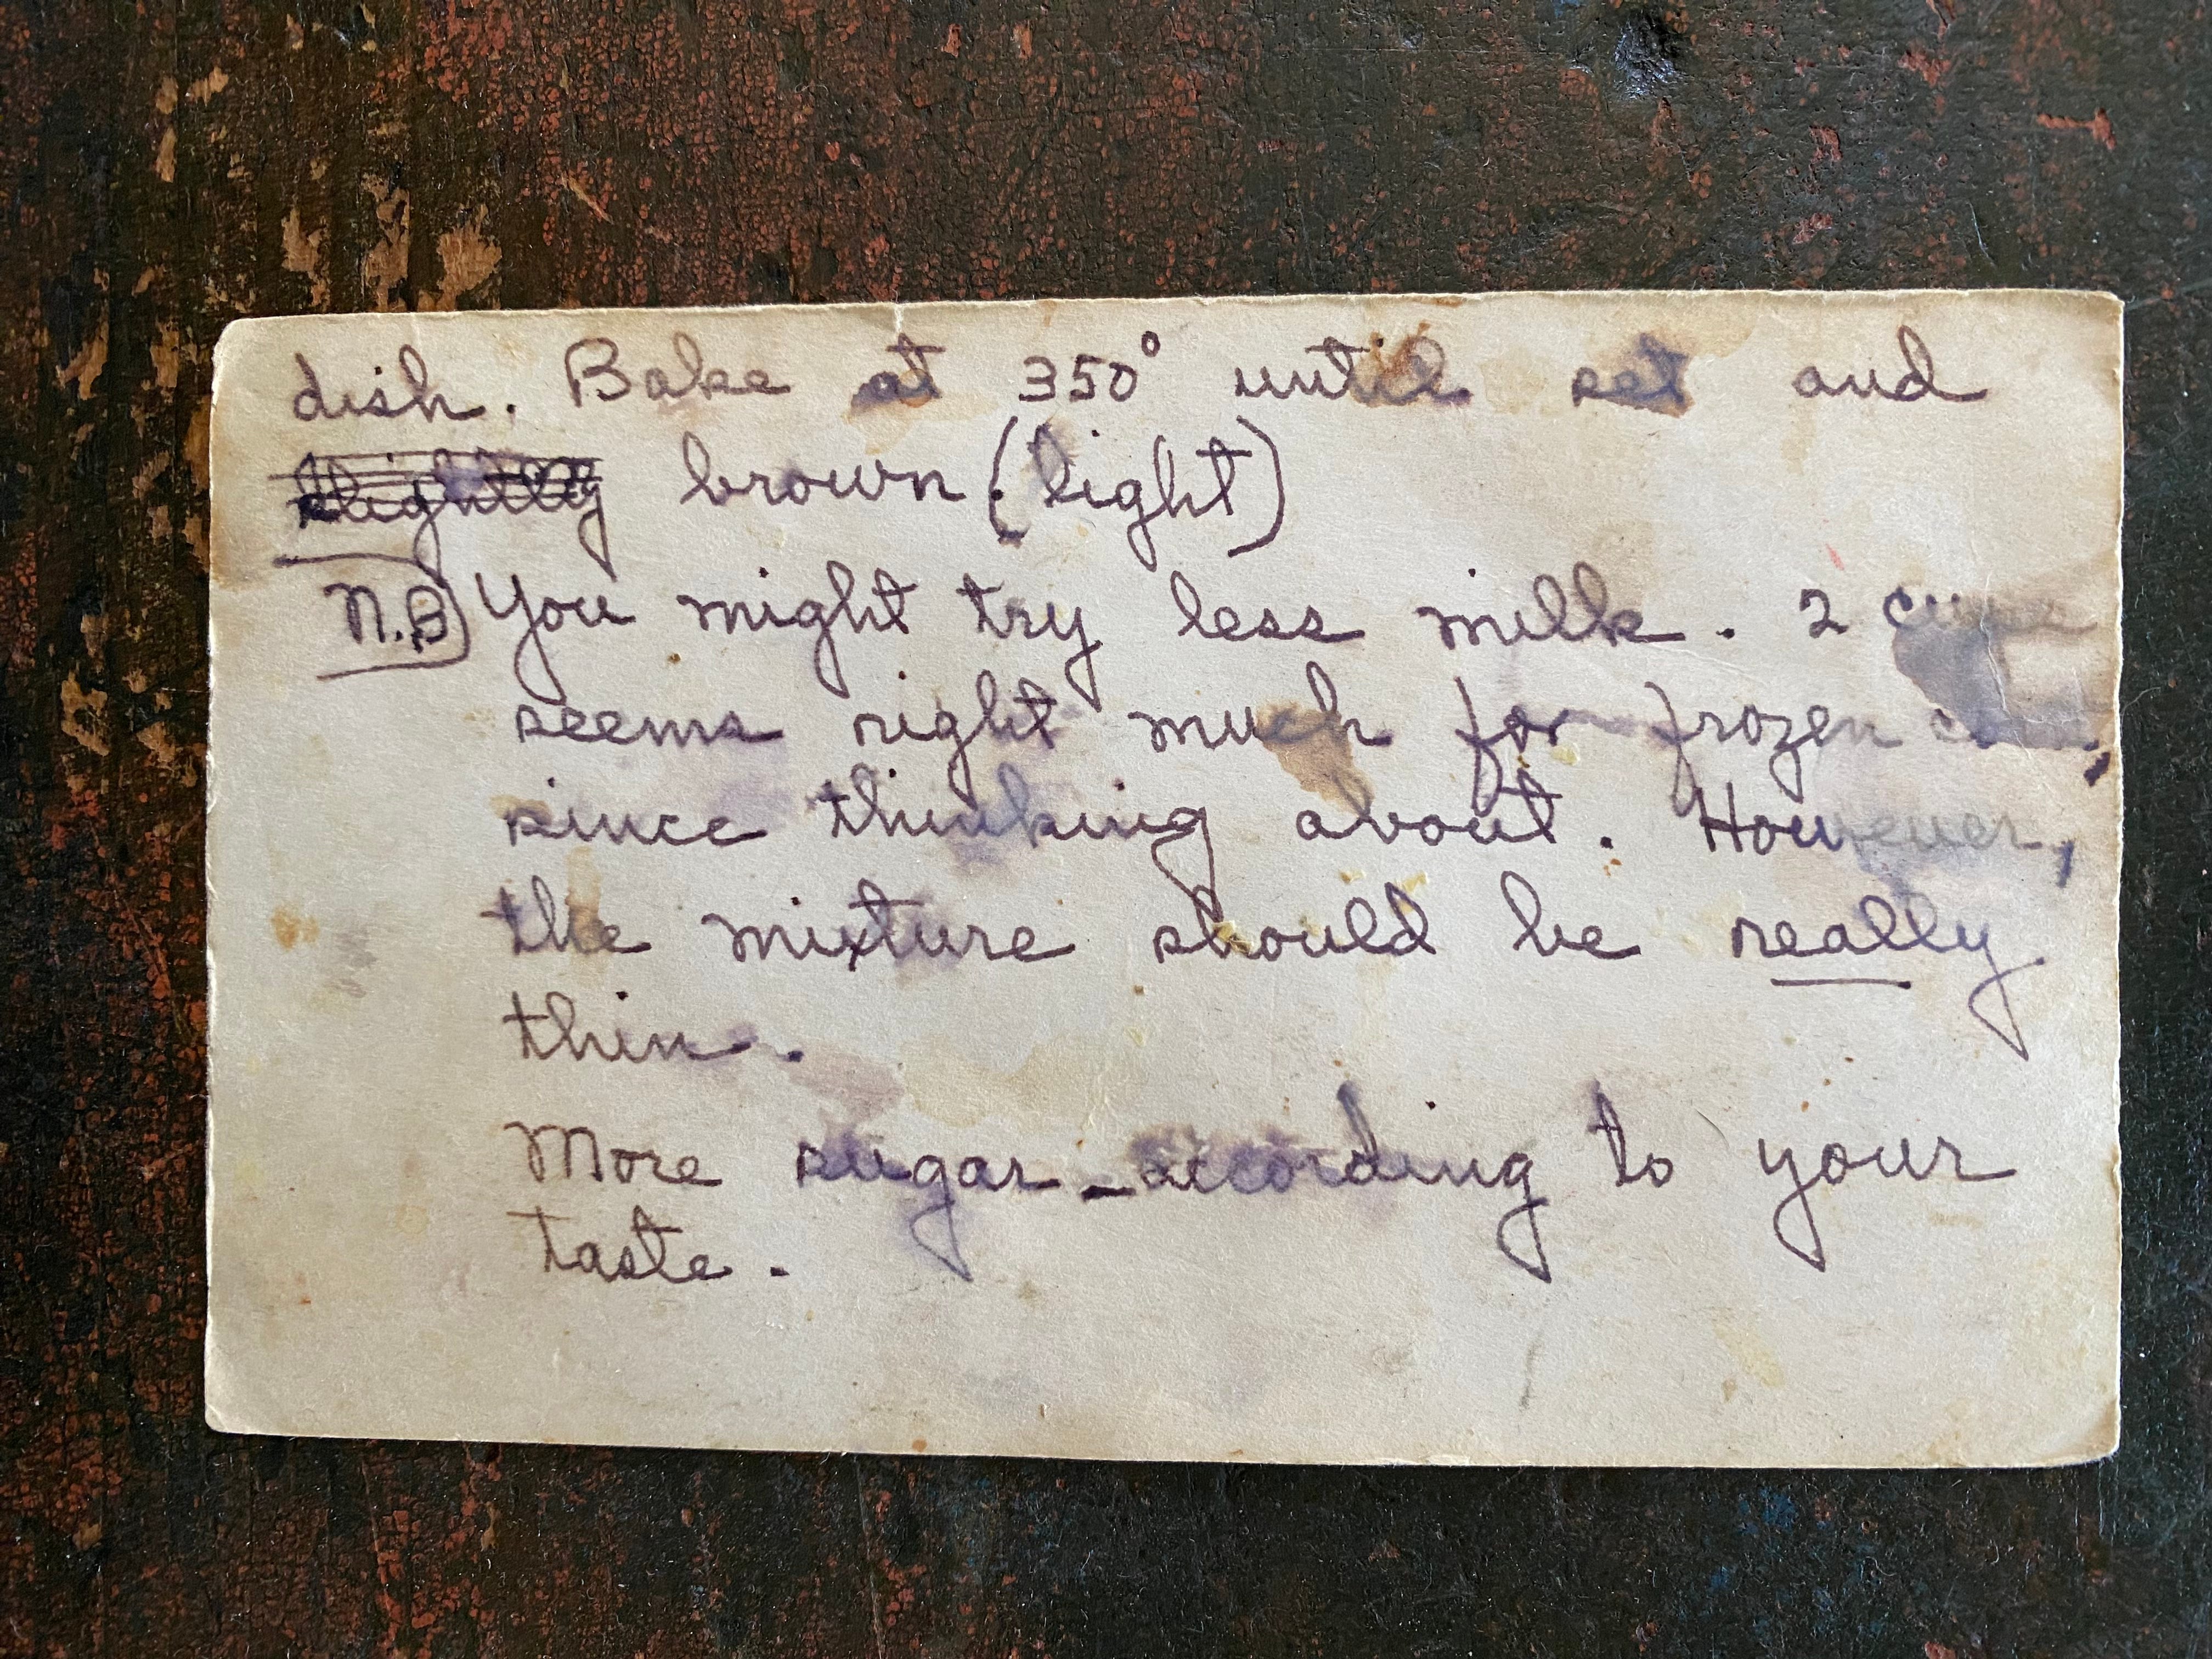 dish. Bake at 350° until set and
slightly brown (light)
N.B) You might try less milk. 2 cups
seems right much for frozen
since thinking about. However,
the mixture should be really
thin.
More sugar - according to your
taste.